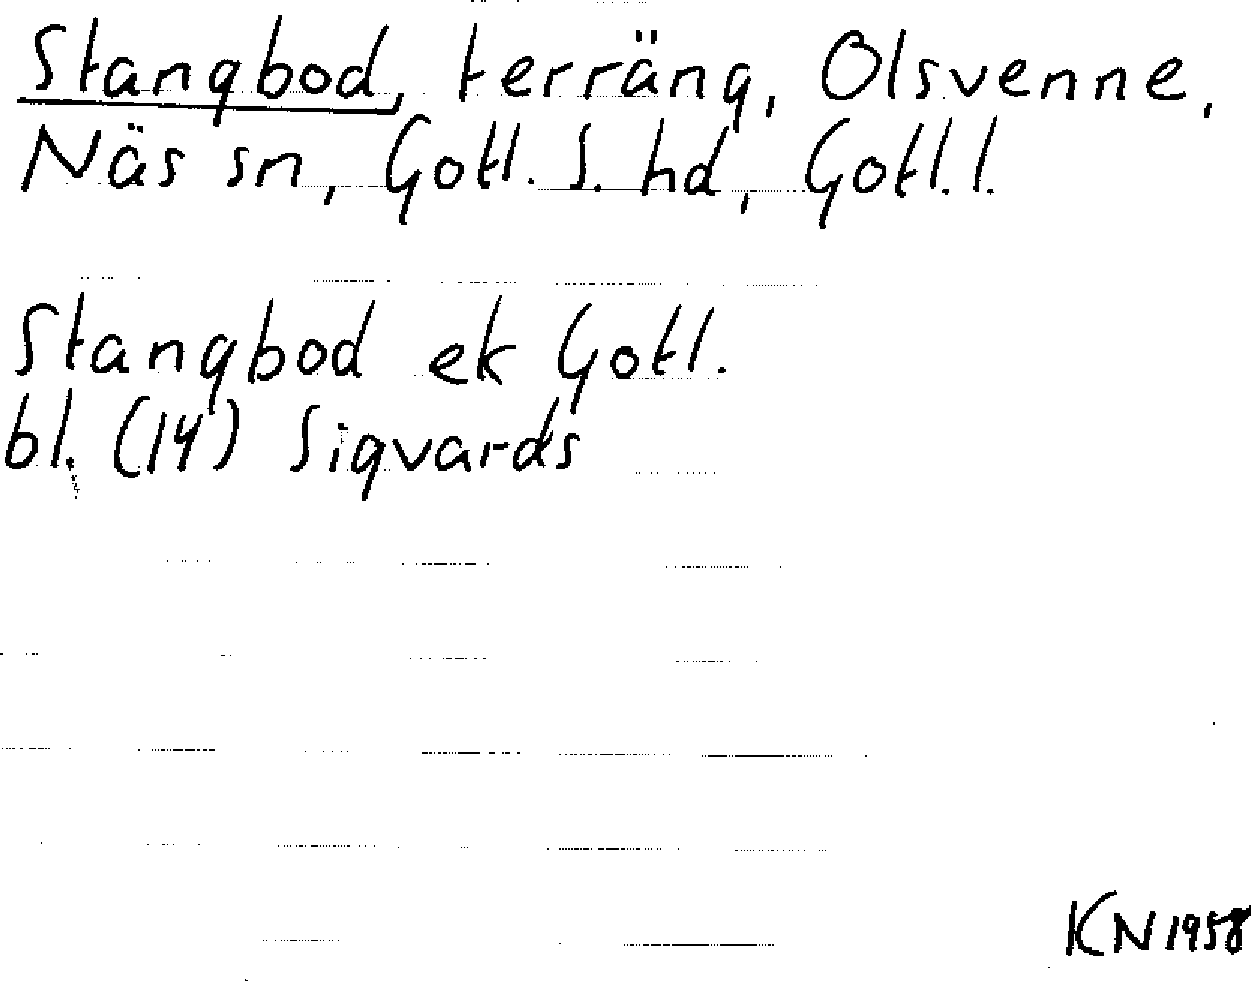 Stangbod, terräng, Olsvenne,
Näs sn, Gotl. S. hd, Gotl. l.
Stangbod ek Gotl.
bl. (14) Sigvards
KN 1958